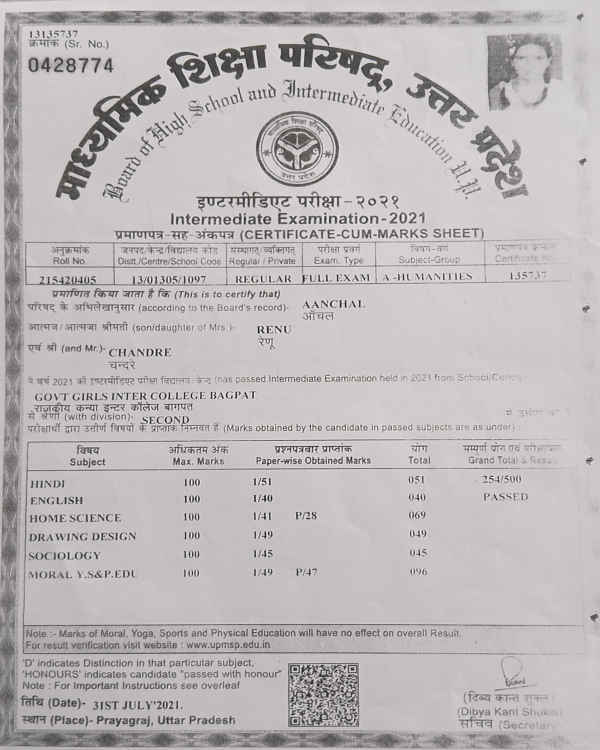 13135737
क्रमांक (Sr. No.)
0428774
माध्यमिक शिक्षा परिषद्, उत्तर प्रदेश
Board of High School and Intermediate Education U.P.
माध्यमिक शिक्षा परिषद्
उत्तर प्रदेश
इण्टरमीडिएट परीक्षा-२०२१
Intermediate Examination-2021
प्रमाणपत्र-सह-अंकपत्र (CERTIFICATE-CUM-MARKS SHEET)
अनुक्रमांक जनपद/केन्द्र/विद्यालय कोड संस्थागत/व्यक्तिगत परीक्षा प्रवर्ग विषय-वर्ग प्रमाणपत्र क्रमांक
Roll No. Distt./Centre/School Code Regular / Private Exam. Type Subject-Group Certificate No.
215420405 13/01305/1097 REGULAR FULL EXAM A -HUMANITIES 135737
प्रमाणित किया जाता है कि (This is to certify that)
परिषद के अभिलेखानुसार (according to the Board's record)- AANCHAL
आँचल
आत्मज/आत्मजा श्रीमती (son/daughter of Mrs.)- RENU
रेणू
एवं श्री (and Mr.)- CHANDRE
चन्दरे
ने वर्ष 2021 की इण्टरमीडिएट परीक्षा विद्यालय/केन्द्र (has passed Intermediate Examination held in 2021 from School/Centre)
GOVT GIRLS INTER COLLEGE BAGPAT
राजकीय कन्या इन्टर कॉलेज बागपत
से श्रेणी (with division)- SECOND से उत्तीर्ण की
परीक्षार्थी द्वारा उत्तीर्ण विषयों के प्राप्तांक निम्नवत हैं (Marks obtained by the candidate in passed subjects are as under)
विषय अधिकतम अंक प्रश्नपत्रवार प्राप्तांक योग सम्पूर्ण योग एवं परीक्षाफल
Subject Max. Marks Paper-wise Obtained Marks Total Grand Total & Result
HINDI 100 1/51 051 254/500
ENGLISH 100 1/40 040 PASSED
HOME SCIENCE 100 1/41 P/28 069
DRAWING DESIGN 100 1/49 049
SOCIOLOGY 100 1/45 045
MORAL Y.S&P.EDU 100 1/49 P/47 096
Note :- Marks of Moral, Yoga, Sports and Physical Education will have no effect on overall Result.
For result verification visit website : www.upmsp.edu.in
'D' indicates Distinction in that particular subject,
'HONOURS' indicates candidate "passed with honour"
Note : For Important Instructions see overleaf
तिथि (Date)- 31ST JULY'2021.
स्थान (Place)- Prayagraj, Uttar Pradesh
(दिब्य कान्त शुक्ल)
(Dibya Kant Shukla)
सचिव (Secretary)